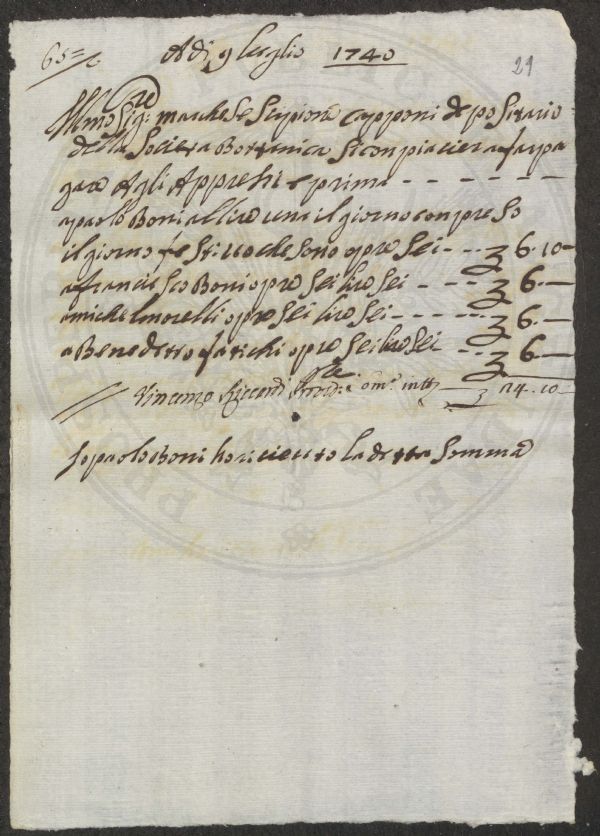 65= Adi 9 luglio 1740 29
Illmo Sig:re marchese Scipione capponi depositario
della Societa Bottanica Si conpiaciera far pa
gare Agli Appresi e prima - - - - - -
a paolo Boni allire una il giorno conpreso
il giorno festiuo che sono opre Sei - - - 6.10 -
a francisco Boni opre Sei lire Sei - - - 6. -
a michel morelli opre Sei lire Sei - - - - 6. -
a Benedetto fatichi opre Sei lire Sei - - - 6. -
Vincenzo 24.10
Io paolo Boni ho riceuuto la detta Somma